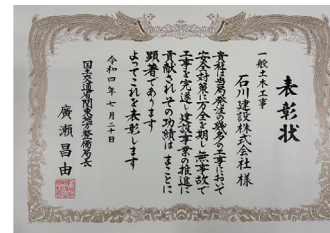 表彰状
一般土木工事
石川建設株式会社 様
貴社は当局発注の幾多の工事において
安全対策に万全を期し無事故で
工事を完遂し建設事業の推進に
貢献されその功績はまことに
顕著であります
よってこれを表彰します
令和四年七月二十日
国土交通省関東地方整備局長
廣瀬昌由